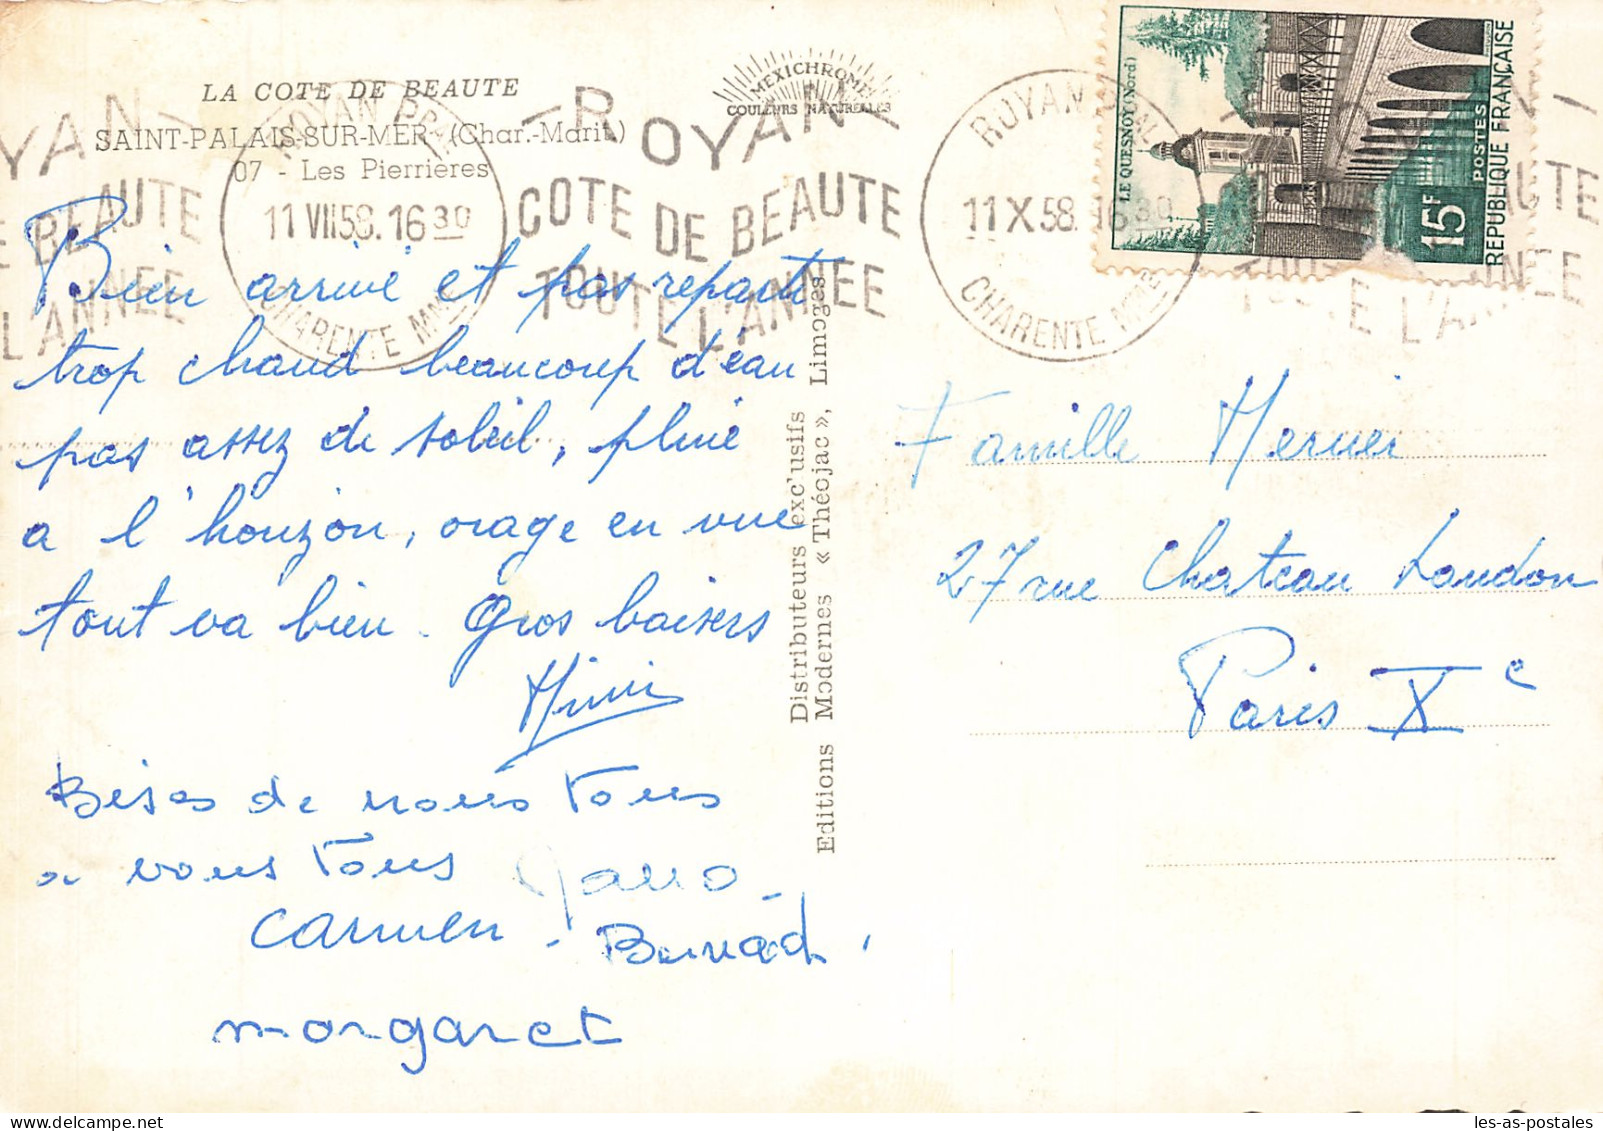 LA COTE DE BEAUTE
SAINT-PALAIS-SUR-MER (Char.-Marit.)
07 - Les Pierrières
MEXICHROME
COULEURS NATURELLES
YAN —
E BEAUTE
L'ANNEE
ROYAN
11 VII 58. 16 30
CHARENTE MME
— ROYAN —
COTE DE BEAUTE
TOUTE L'ANNEE
ROYAN
11 X 58. 16 30
CHARENTE MME
LE QUESNOY (Nord)
15F
POSTES
REPUBLIQUE FRANÇAISE
UTE
TOUTE L'ANNEE
Bien arrivé et pas reparti
trop chaud beaucoup d'eau
pas assez de soleil, pluie
a l'horizon, orage en vue
tout va bien. Gros baisers
Mimi
Bises de nous tous
a vous tous
Carmen -
margaret
Distributeurs exc'usifs
Editions Modernes « Théojac », Limoges
Famille
27 rue Chateau Landon
Paris Xe
les-as-postales.com